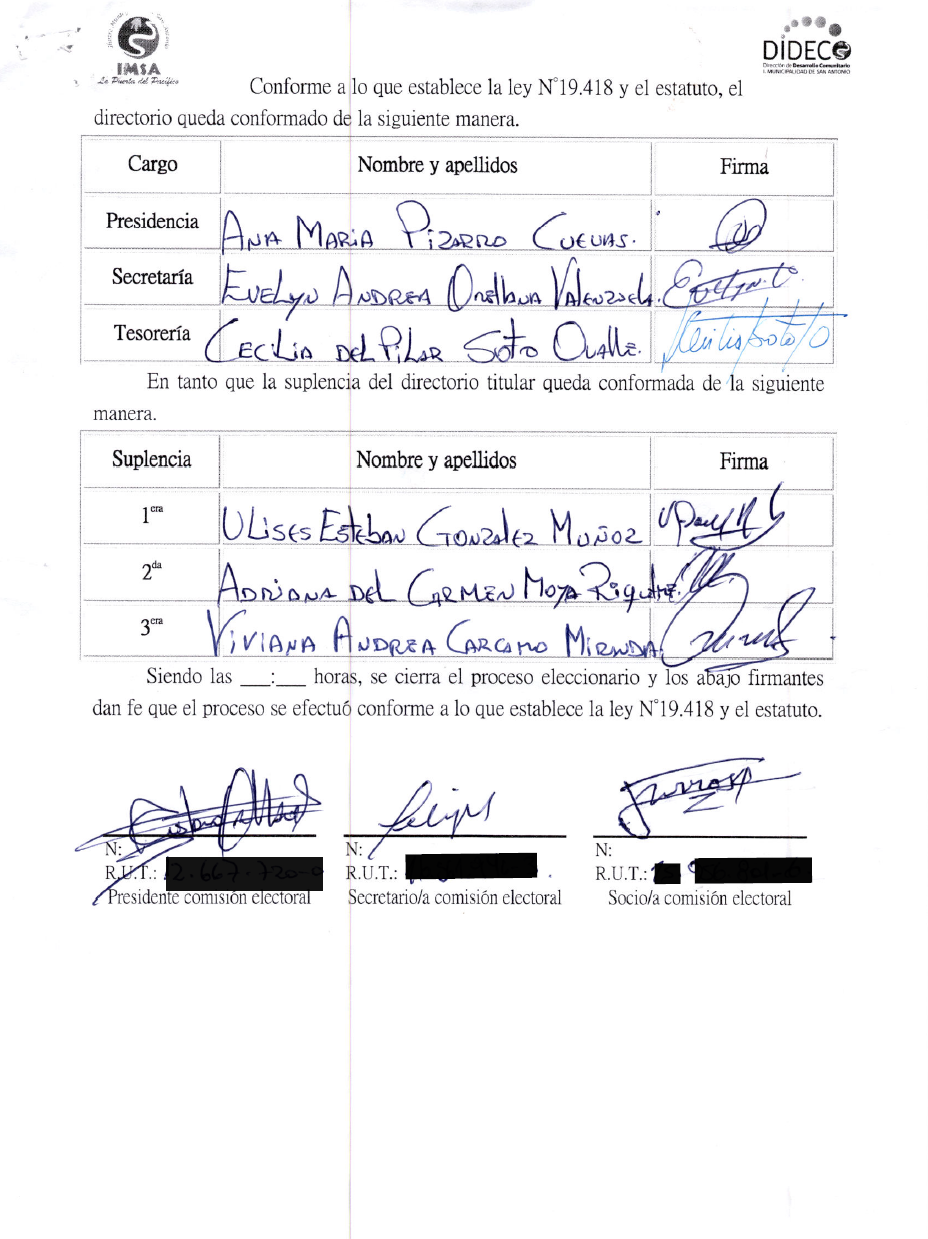 IMSA
La Puerta del Pacífico
DIDECO
Dirección de Desarrollo Comunitario
I. MUNICIPALIDAD DE SAN ANTONIO
Conforme a lo que establece la ley N°19.418 y el estatuto, el
directorio queda conformado de la siguiente manera.
Cargo Nombre y apellidos Firma
Presidencia ANA MARIA PIZARRO CUEVAS.
Secretaría EVELYN ANDREA Orellana Valenzuela. Evelyn.O
Tesorería CECILIA DEL PILAR SOTO OVALLE. Cecilia Soto O
En tanto que la suplencia del directorio titular queda conformada de la siguiente
manera.
Suplencia Nombre y apellidos Firma
1era ULISES ESTEBAN GONZALEZ MUÑOZ
2da ADRIANA DEL CARMEN MOYA
3era VIVIANA ANDREA CARCAMO MIRANDA
Siendo las ___:___ horas, se cierra el proceso eleccionario y los abajo firmantes
dan fe que el proceso se efectuó conforme a lo que establece la ley N°19.418 y el estatuto.
N: N: N:
R.U.T.: R.U.T.: R.U.T.:
Presidente comisión electoral Secretario/a comisión electoral Socio/a comisión electoral